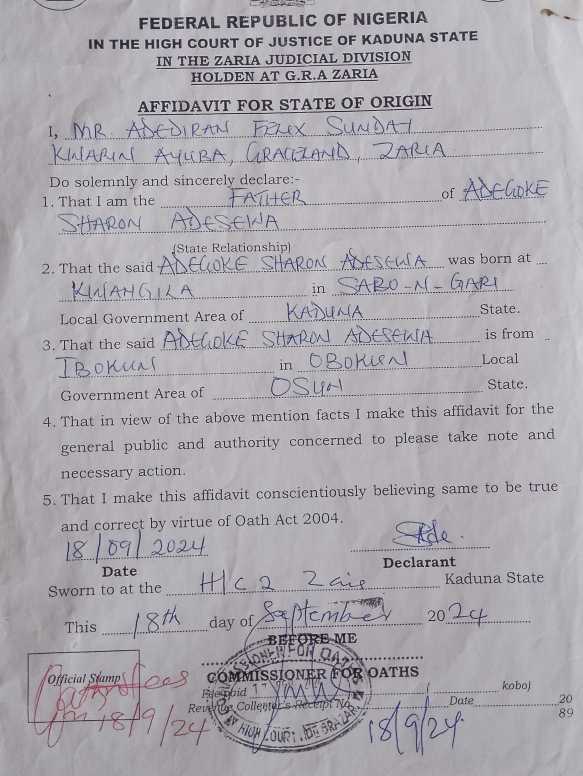 FEDERAL REPUBLIC OF NIGERIA
IN THE HIGH COURT OF JUSTICE OF KADUNA STATE
IN THE ZARIA JUDICIAL DIVISION
HOLDEN AT G.R.A ZARIA
AFFIDAVIT FOR STATE OF ORIGIN
I, MR. ADEDIRAN FELIX SUNDAY
KWARIN AYUBA, GRACELAND, ZARIA
Do solemnly and sincerely declare:-
1. That I am the FATHER of ADEGOKE
SHARON ADESEWA
(State Relationship)
2. That the said ADEGOKE SHARON ADESEWA was born at
KWANGILA in SABO-N-GARI
Local Government Area of KADUNA State.
3. That the said ADEGOKE SHARON ADESEWA is from
IBOKUN in OBOKUN Local
Government Area of OSUN State.
4. That in view of the above mention facts I make this affidavit for the
general public and authority concerned to please take note and
necessary action.
5. That I make this affidavit conscientiously believing same to be true
and correct by virtue of Oath Act 2004.
18/09/2024
Date
Declarant
Sworn to at the H/C 2 Kaduna State
This 18th day of September 2024
BEFORE ME
COMMISSIONER FOR OATHS
Official Stamp
fees
18/9/24
paid kobo)
Revenue Collector's Receipt No. Date 20
89
18/9/24